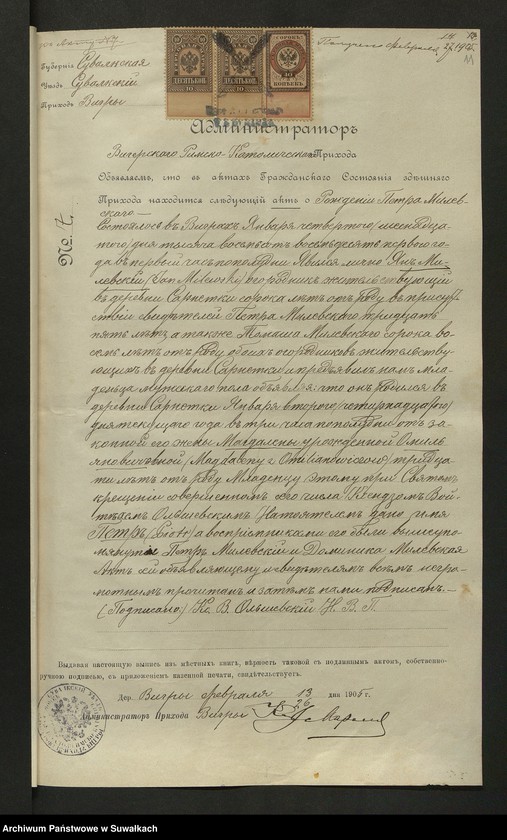 Губернія Сувалкская
Уѣздъ Сувалкскій
Приходъ Вигры
Получено февраля
11
ДЕСЯТЬ КОП. 10
ДЕСЯТЬ КОП. 10
10 КОПѢЕКЪ
Администраторъ
Вигерскаго Римско-Католическаго Прихода
Объявляемъ, что въ актахъ Гражданскаго Состоянія здѣшняго
Прихода находится слѣдующій актъ о Рожденіи Петра Милев-
скаго
No. 7.
Состоялось въ Виграхъ Января четвертаго /шестнадца-
таго/ дня тысяча восемьсотъ восемьдесятъ перваго го-
да въ первый часъ пополудни. Явился лично Янъ Ми-
левскій /Jan Milewski/ огородникъ жительствующій
въ деревни Сарнетки сорока лѣтъ отъ роду въ присут-
ствіи свидѣтелей Петра Милевскаго тридцать
пять лѣтъ, а также Томаша Милевскаго сорока во-
семь лѣтъ отъ роду обоихъ огородниковъ жительству-
ющихъ въ деревни Сарнетки и предъявилъ намъ мла-
денца мужескаго пола объявляя: что онъ родился въ
деревни Сарнетки Января втораго /четырнадцатаго/
дня текущаго года въ три часа пополудни отъ за-
конной его жены Магдалены урожденной Омиль
яновичовной /Magdaleny z Omilianowiczow/ тридца-
ти лѣтъ отъ роду. Младенцу этому при Святомъ
крещеніи совершенномъ сего числа Ксендзомъ Вой-
тѣхомъ Ольшевскимъ Настоятелемъ дано имя
Петръ /Piotr/ а воспріемниками его были вышеупо-
мянутый Петръ Милевскій и Доминика Милевская
Актъ сей объявляющему и свидѣтелямъ всѣмъ негра-
мотнымъ прочитанъ а затѣмъ нами подписанъ.
(Подписано:) Кс. В. Ольшевскій Н. В. П.
Выдавая настоящую выпись изъ мѣстныхъ книгъ, вѣрность таковой съ подлиннымъ актомъ, собственно-
ручною подписью, съ приложеніемъ казенной печати, свидѣтельствуетъ.
Дер. Вигры февраля 13/26 дня 1905 г.
Администраторъ Прихода Вигры
Archiwum Państwowe w Suwałkach